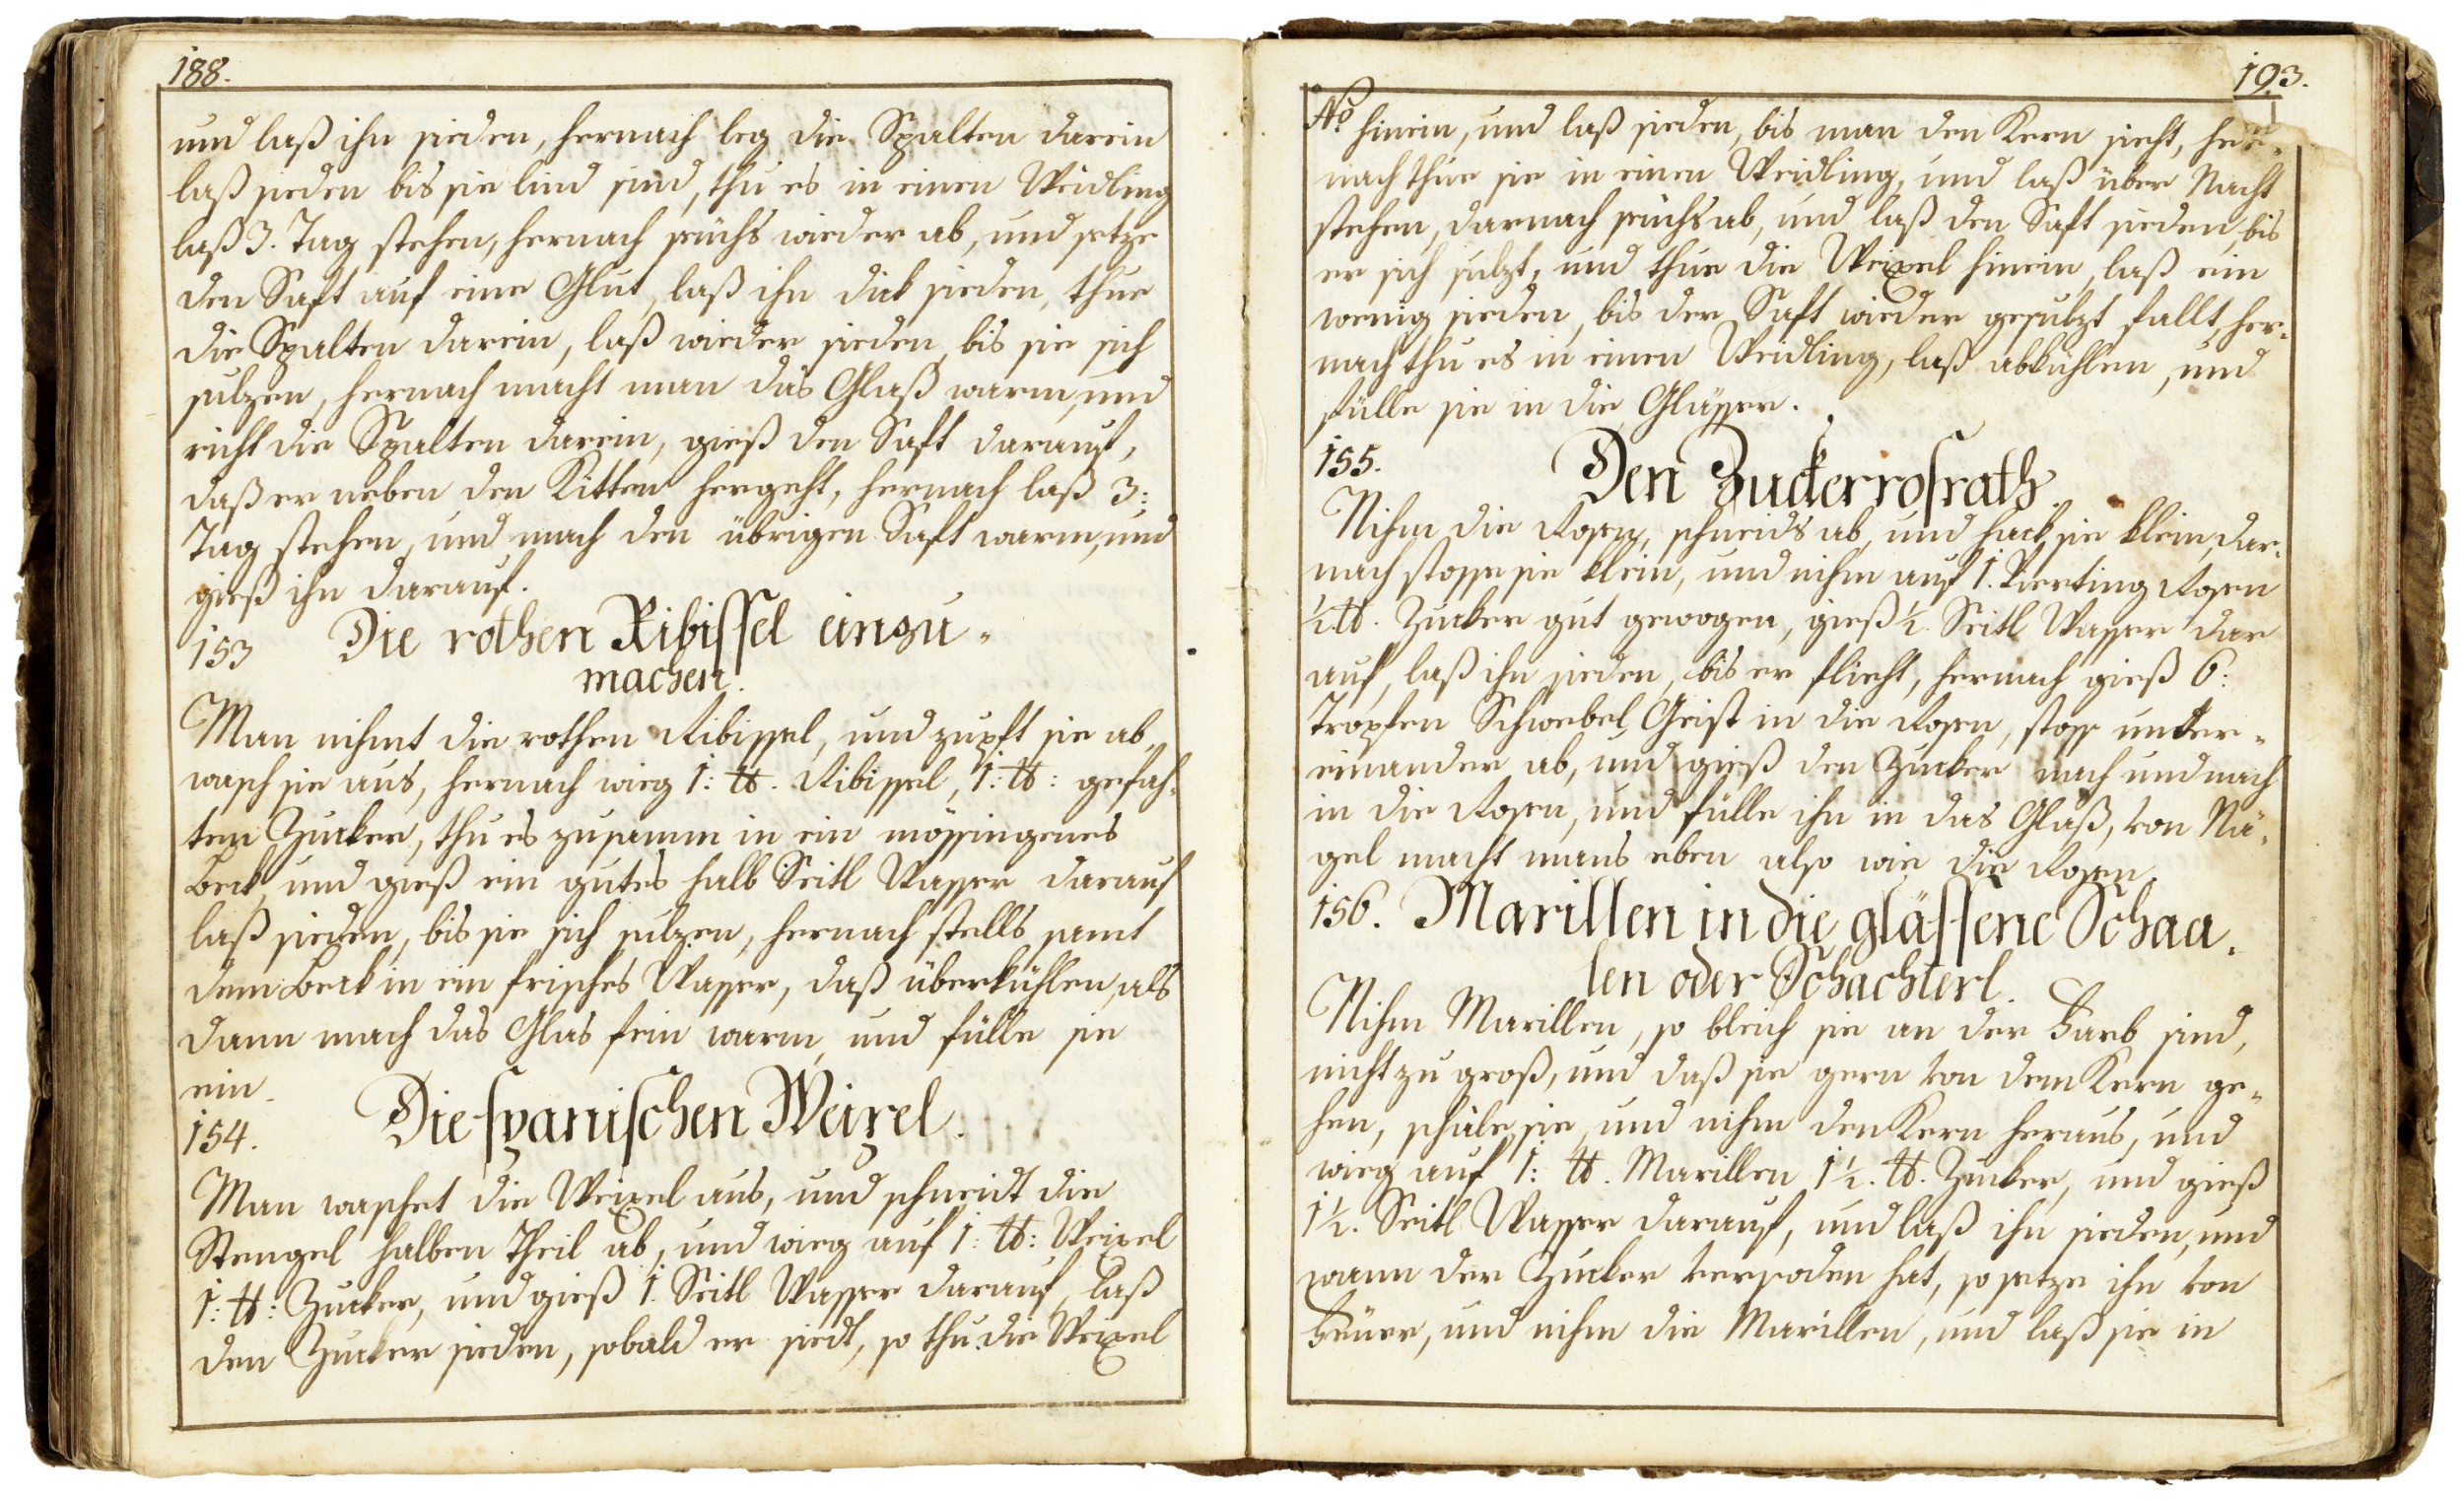 188.
und laß ihn sieden, hernach leg die Spalten darein
laß sieden bis sie lind sind, thu es in einen Weidling
laß 3. Tag stehen, hernach seüchs wieder ab, und setze
den Saft auf eine Glut, laß ihn dick sieden, thue
die Spalten darein, laß wieder sieden, bis sie sich
sulzen, hernach macht man das Glaß warm, und
richt die Spalten darein, gieß den Saft darauf,
daß er neben den Kitten hergeht, hernach laß 3:
Tag stehen, und mach den übrigen Saft warm, und
gieß ihn darauf.
153 Die rothen Ribissel einzu-
machen.
Man nihmt die rothen Ribissel, und zupft sie ab,
wasch sie aus, hernach wieg 1: ℔. Ribissel, 1: ℔: gefäh-
ten Zucker, thu es zusamm in ein mössingenes
Beck, und gieß ein gutes halb Seitl Wasser darauf
laß sieden, bis sie sich sulzen, hernach stells samt
dem Beck in ein frisches Wasser, daß überkühlen, als
dann mach das Glas fein warm, und fülle sie
ein.
154. Die spanischen Weixel.
Man waschet die Weixel aus, und schneidt die
Stengel halben Theil ab, und wieg auf 1: ℔: Weixel
1: ℔: Zucker, und gieß 1. Seitl Wasser darauf, laß
den Zucker sieden, sobald er siedt, so thu die Weixel
193.
No hinein, und laß sieden, bis man den Kern sieht, her-
nach thue sie in einen Weidling, und laß über Nacht
stehen, darnach seüchs ab, und laß den Saft sieden, bis
er sich sulzt, und thue die Weixel hinein, laß ein
wenig sieden, bis der Saft wieder gesulzt fallt, her-
nach thu es in einen Weidling, laß abkühlen, und
fülle sie in die Glässer.
155. Den Zuckerrosrath.
Nihm die Rosen, schneids ab, und hack sie klein, dar-
nach stosse sie klein, und nihm auf 1. Vierting Rosen
½ ℔. Zucker gut gewogen, gieß ½. Seitl Wasser dar
auf, laß ihn sieden, bis er flieht, hernach gieß 6:
Tropfen Schwebel Geist in die Rosen, stoss unter-
einander ab, und gieß den Zucker nach und nach
in die Rosen, und fülle ihn in das Glaß, von Nä-
gel macht mans eben also wie die Rosen.
156. Marillen in die glässene Schaa-
len oder Schachterl.
Nihm Marillen, so bleich sie an der Farb sind,
nicht zu groß, und daß sie gern von dem Kern ge-
hen, schäle sie, und nihm den Kern heraus, und
wieg auf 1: ℔. Marillen 1½. ℔. Zucker, und gieß
1½. Seitl Wasser darauf, und laß ihn sieden, und
wann der Zucker versoden hat, so setze ihn von
Feuer, und nihm die Marillen, und laß sie in